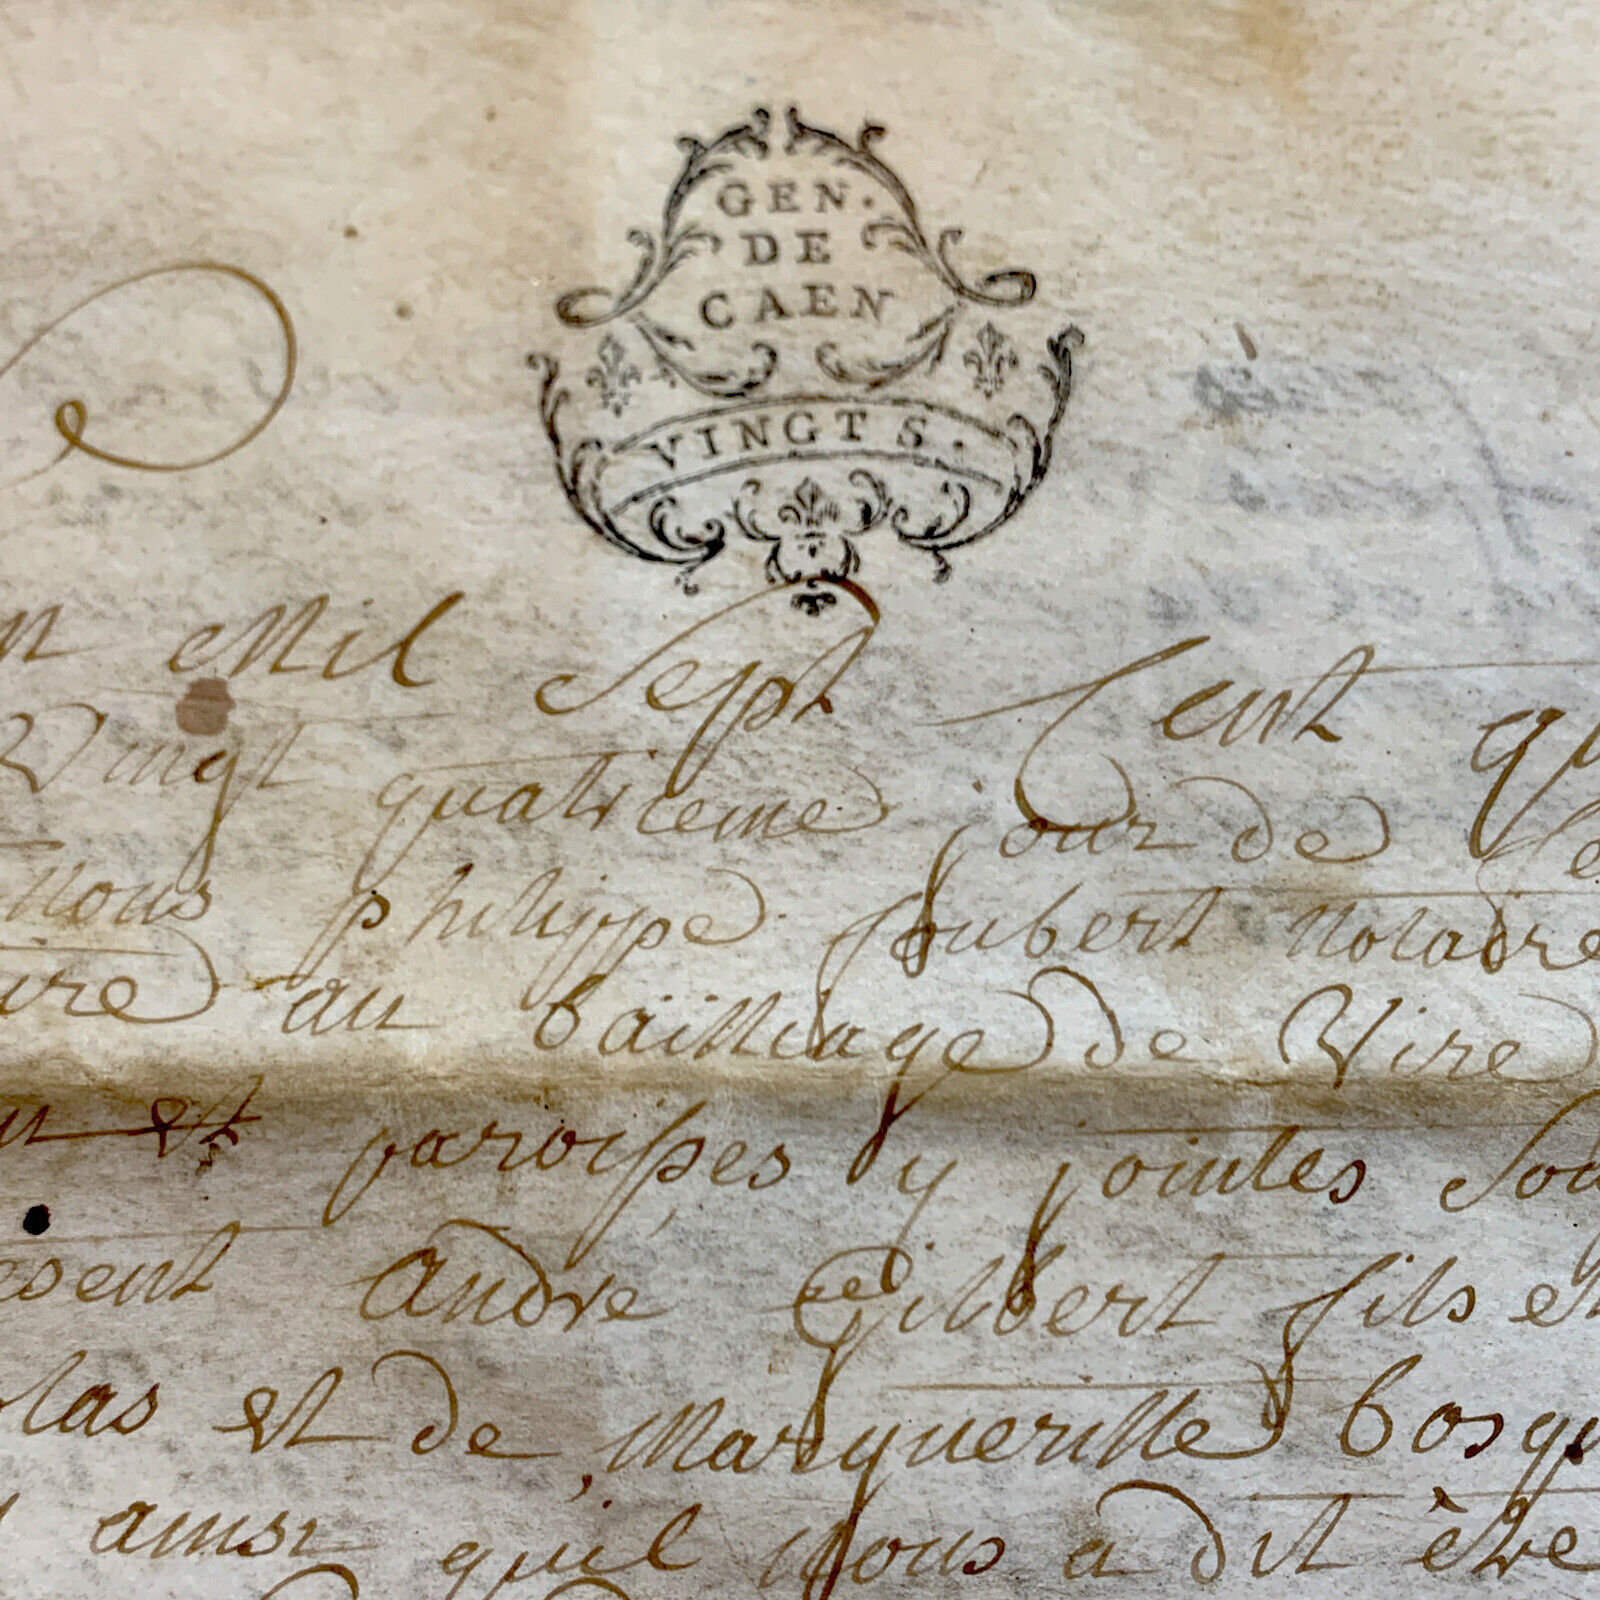 GEN.
DE
CAEN
VINGT S.
Mil Sept Cent
Vingt quatrieme jour de
Nous philippe Joubert notaire
au bailliage de Vire
et paroisses y jointes
andre Gilbert fils et
et de Margueritte bosqu
ainsi qu'il nous a dit être